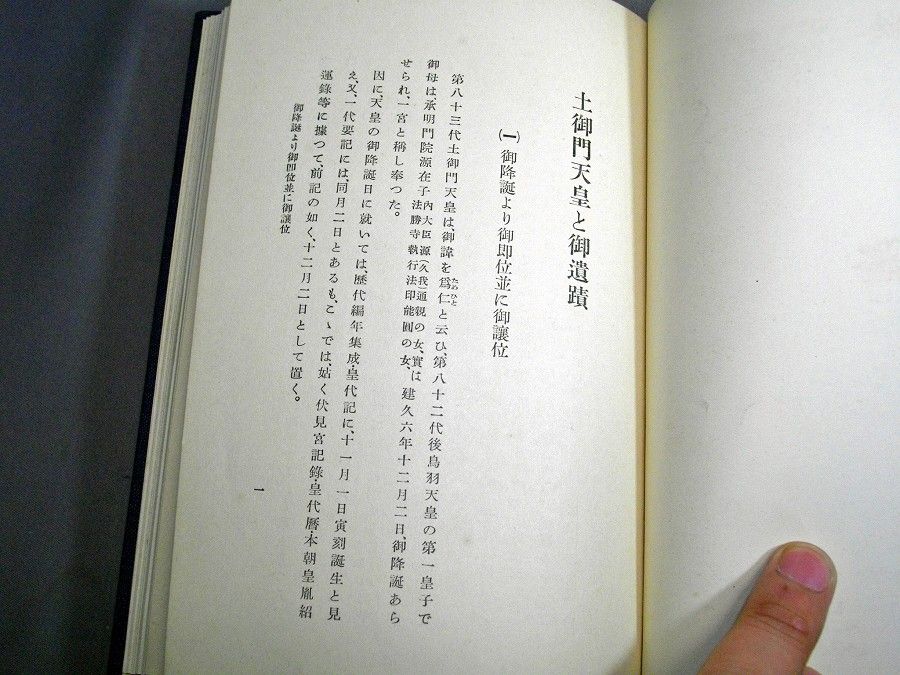 土御門天皇と御遺蹟
(一) 御降誕より御即位並に御讓位
第八十三代土御門天皇は、御諱を爲仁と云ひ、第八十二代後鳥羽天皇の第一皇子で
ためひと
御母は、承明門院源在子
内大臣源(久我)通親の女、實は
法勝寺執行法印能圓の女、
建久六年十二月二日、御降誕あら
せられ、一宮と稱し奉つた。
因に、天皇の御降誕日に就いては、歴代編年集成・皇代記に、十一月一日寅刻誕生と見
え、又、一代要記には、同月二日とあるも、こゝでは、姑く伏見宮記錄・皇代曆・本朝皇胤紹
運錄等に據つて、前記の如く、十二月二日として置く。
御降誕より御即位並に御讓位
一